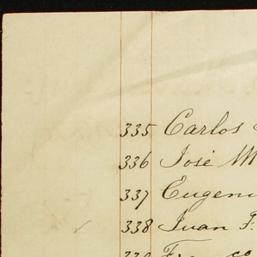 335 Carlos
336 José M
337 Eugeni
338 Juan F.
339 Franco